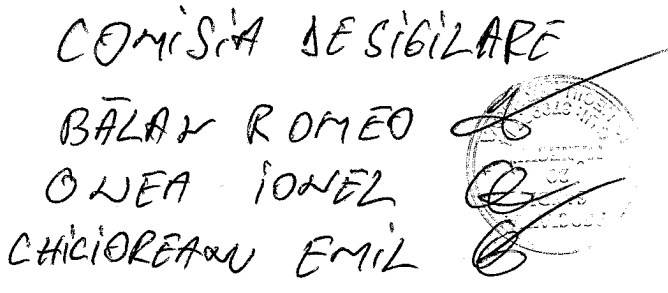 COMiSiA DE SiGiLARE
BĂLAN ROMEO
ONEA iONEL
CHiCiOREANU EMiL